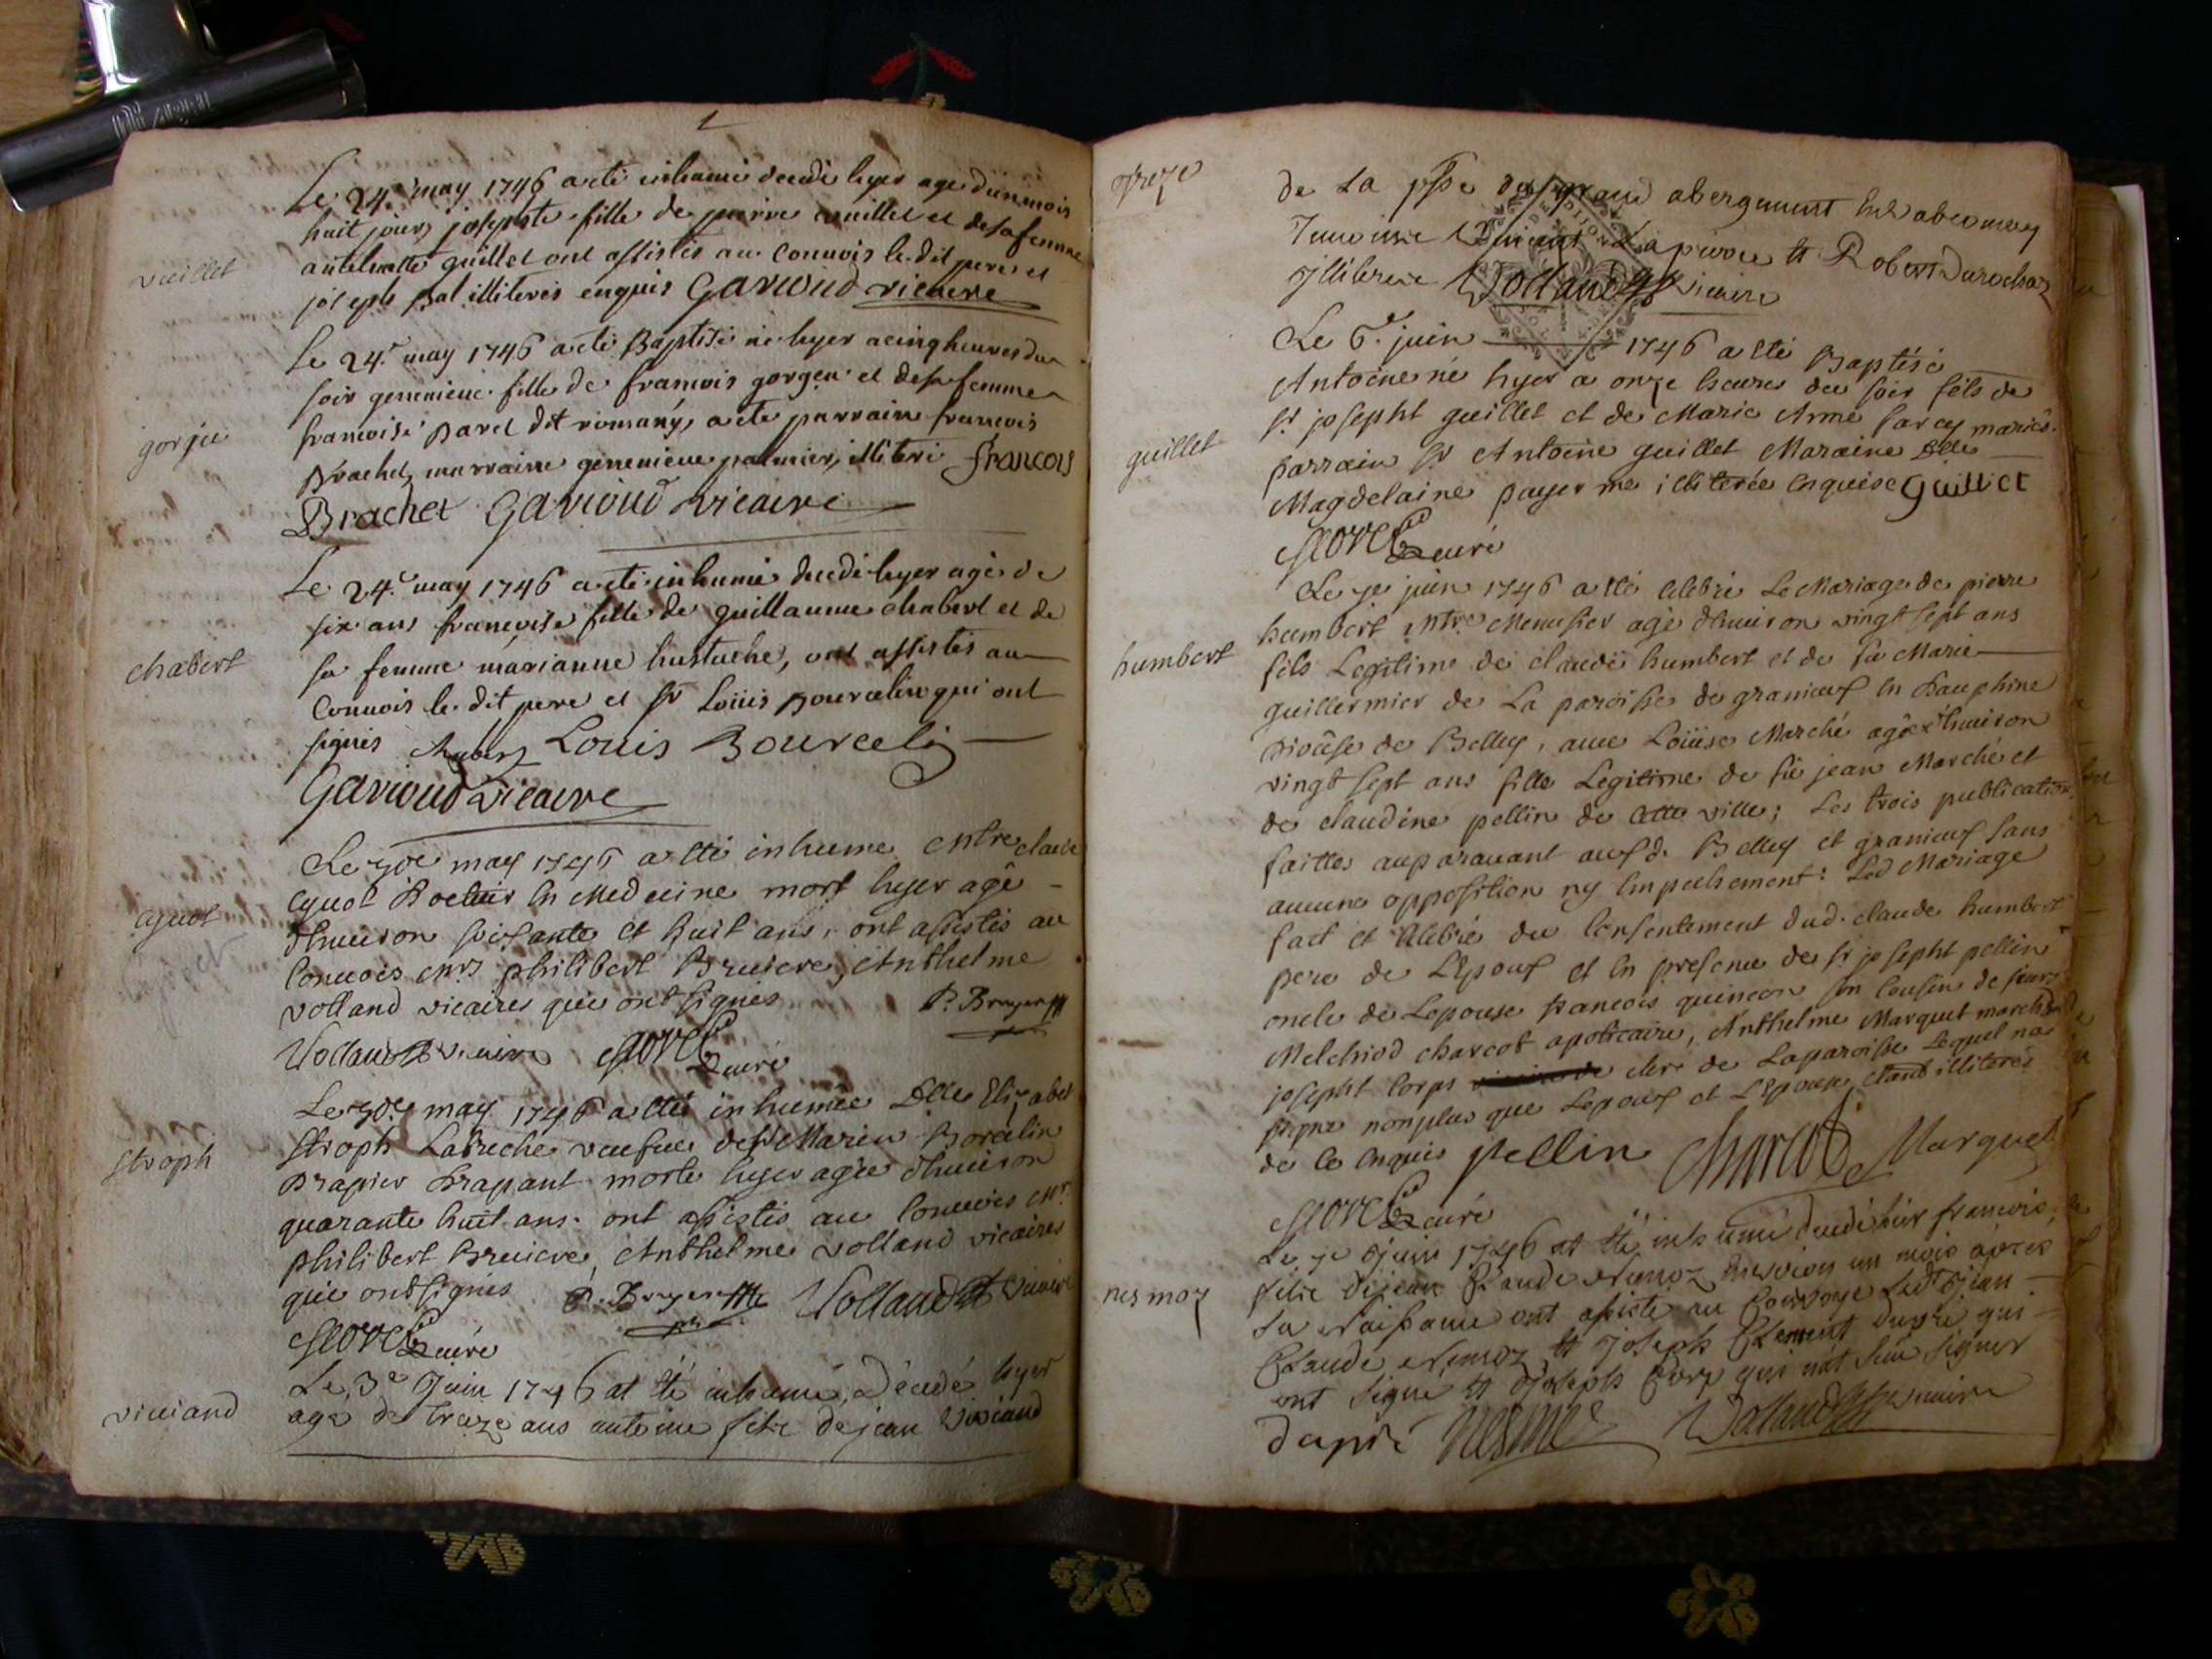 Le 24.e may 1746 a eté inhumé decedé hyer age d'un mois
huit jours josephte fille de pierre vuillet et de sa femme
antelmette guillet ont assistés au Convois le dit pere et
joseph pal illiterés enquis Garioud vicaire
vuillet
Le 24.e may 1746 a eté Baptisé né hyer a cinq heures du
soir genevieve fille de francois gorgeu et de sa femme
francoise Parel dit romany, a eté parrain francois
Brachet, marraine genevieve palmier, illiteré francoys
Brachet Garioud vicaire
gorju
Le 24.e may 1746 a eté inhumé decedé hyer agé de
six ans francoise fille de guillaume chabert et de
sa femme marianne hustache, ont assistés au
Convois le dit pere et sr Loüis Bourcelin qui ont
signés Chabert Louis Bourcelin
Garioud vicaire
chabert
Le 30e may 1746 a eté inhumé Mtre claude
Cyvot Docteur en Medecine mort hyer agé
d'henviron soixante et huit ans, ont assistés au
Convois Mrs philibert Bruiere, Anthelme
volland vicaires qui ont signés P. Bruyere
Volland vicaire curé
Le 30e may 1746 a eté inhumée Dlle Elizabet
Stroph Labiche veufve de sr Marieu Borcelin
Drapier Drapant morte hyer agée d'henviron
quarante huit ans. ont assistés au Convois Mrs
philibert Bruiere, Anthelme volland vicaires
qui ont signés P. Bruyere Volland vicaire
curé
Stroph
Le 3e Juin 1746 at été inhumé, Décedé hyer
agé de treize ans antoine fils de jean Viviand
viviand
de La psse du grand abergement
et Robert Durochat
Volland vicaire
Le 6.e juin 1746 a eté Baptisé
Antoine né hyer a onze heures du soir fils de
sr josepht guillet et de Marie Anne Sarcey mariés.
parrain sr Antoine guillet Maraine Dlle
Magdelaine payerne illiterée enquise Guillet
curé
guillet
Le 7e juin 1746 a eté celebré Le Mariage de pierre
humbert Mtre Menusier agé d'henviron vingt sept ans
fils Legitime de claude humbert et de füe Marie
guillermier de La paroisse de granieux en Dauphine
Diocése de Belley, avec Loüise Marché agée d'henviron
vingt sept ans fille Legitime de fü jean Marché et
de claudine pellin de cette ville; Les trois publications
faittes auparavant aux d. Belley et granieux sans
aucune opposition ny Empechement: Led Mariage
fait et celebré du Consentement dud. claude humbert
pere de L'Epoux et en presence de sr josepht pellin
oncle de Lepouse francois quincon son Cousin de
Melchiod charcot apoticaire, Anthelme Marquet marchand
josepht Corps clerc de Laparoisse Lequel na
signé nonplus que Lepoux et L'Epouse etant illiterés
de ce enquis Pellin Charcot Marquet
curé
humbert
Le 7e Juin 1746 at été inhumé decedé hier francois
fils de jean Claude Nemoz environ un mois apres
sa Naissance ont assisté au Convoye Ledt Jean
Claude Nemoz et Joseph Clement dupré qui
ont signé et Joseph Corp qui n'at sceu signer
dupré Nesme Volland vicaire
nesmoz